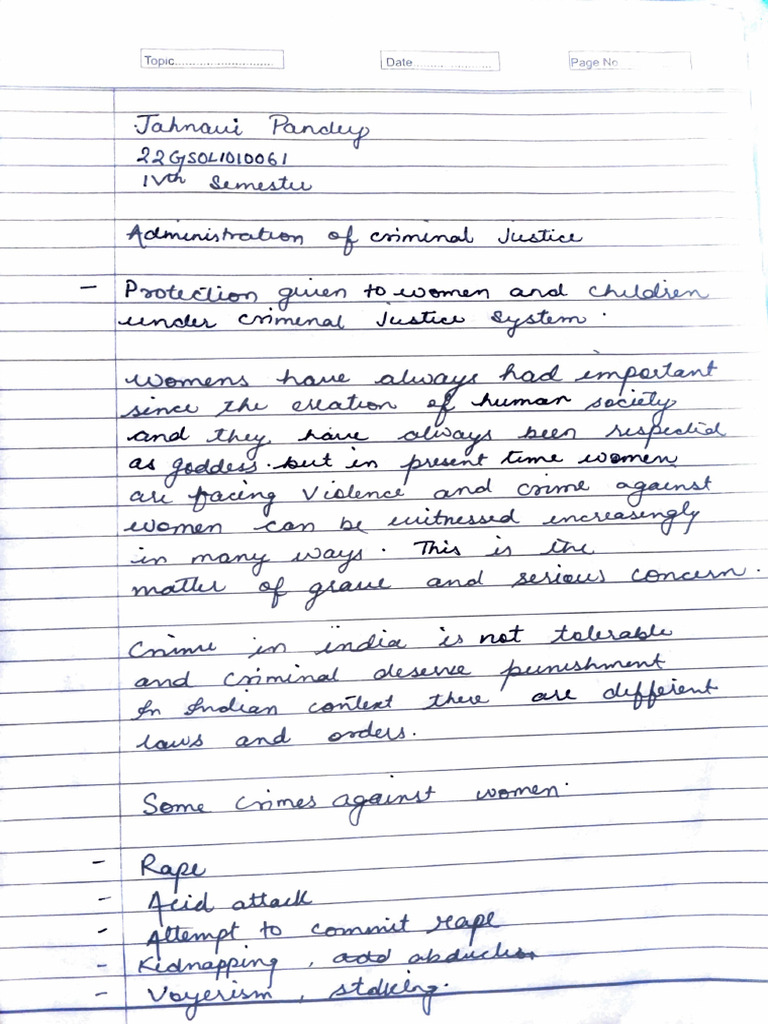 Topic............................ Date........................ Page No
Jahnavi Pandey
22GSOL1010061
IVth Semester
Administration of criminal Justice
- Protection given to women and children
under criminal Justice System.
Womens have always had important
since the creation of human society
and they have always been respected
as goddess. but in present time women
are facing Violence and crime against
women can be witnessed increasingly
in many ways. This is the
matter of grave and serious concern.
Crime in india is not tolerable
and criminal deserve punishment
In Indian context there are different
laws and orders.
Some crimes against women.
- Rape
- Acid attack
- Attempt to commit rape
- Kidnapping, abduction
- Voyerism, stalking.